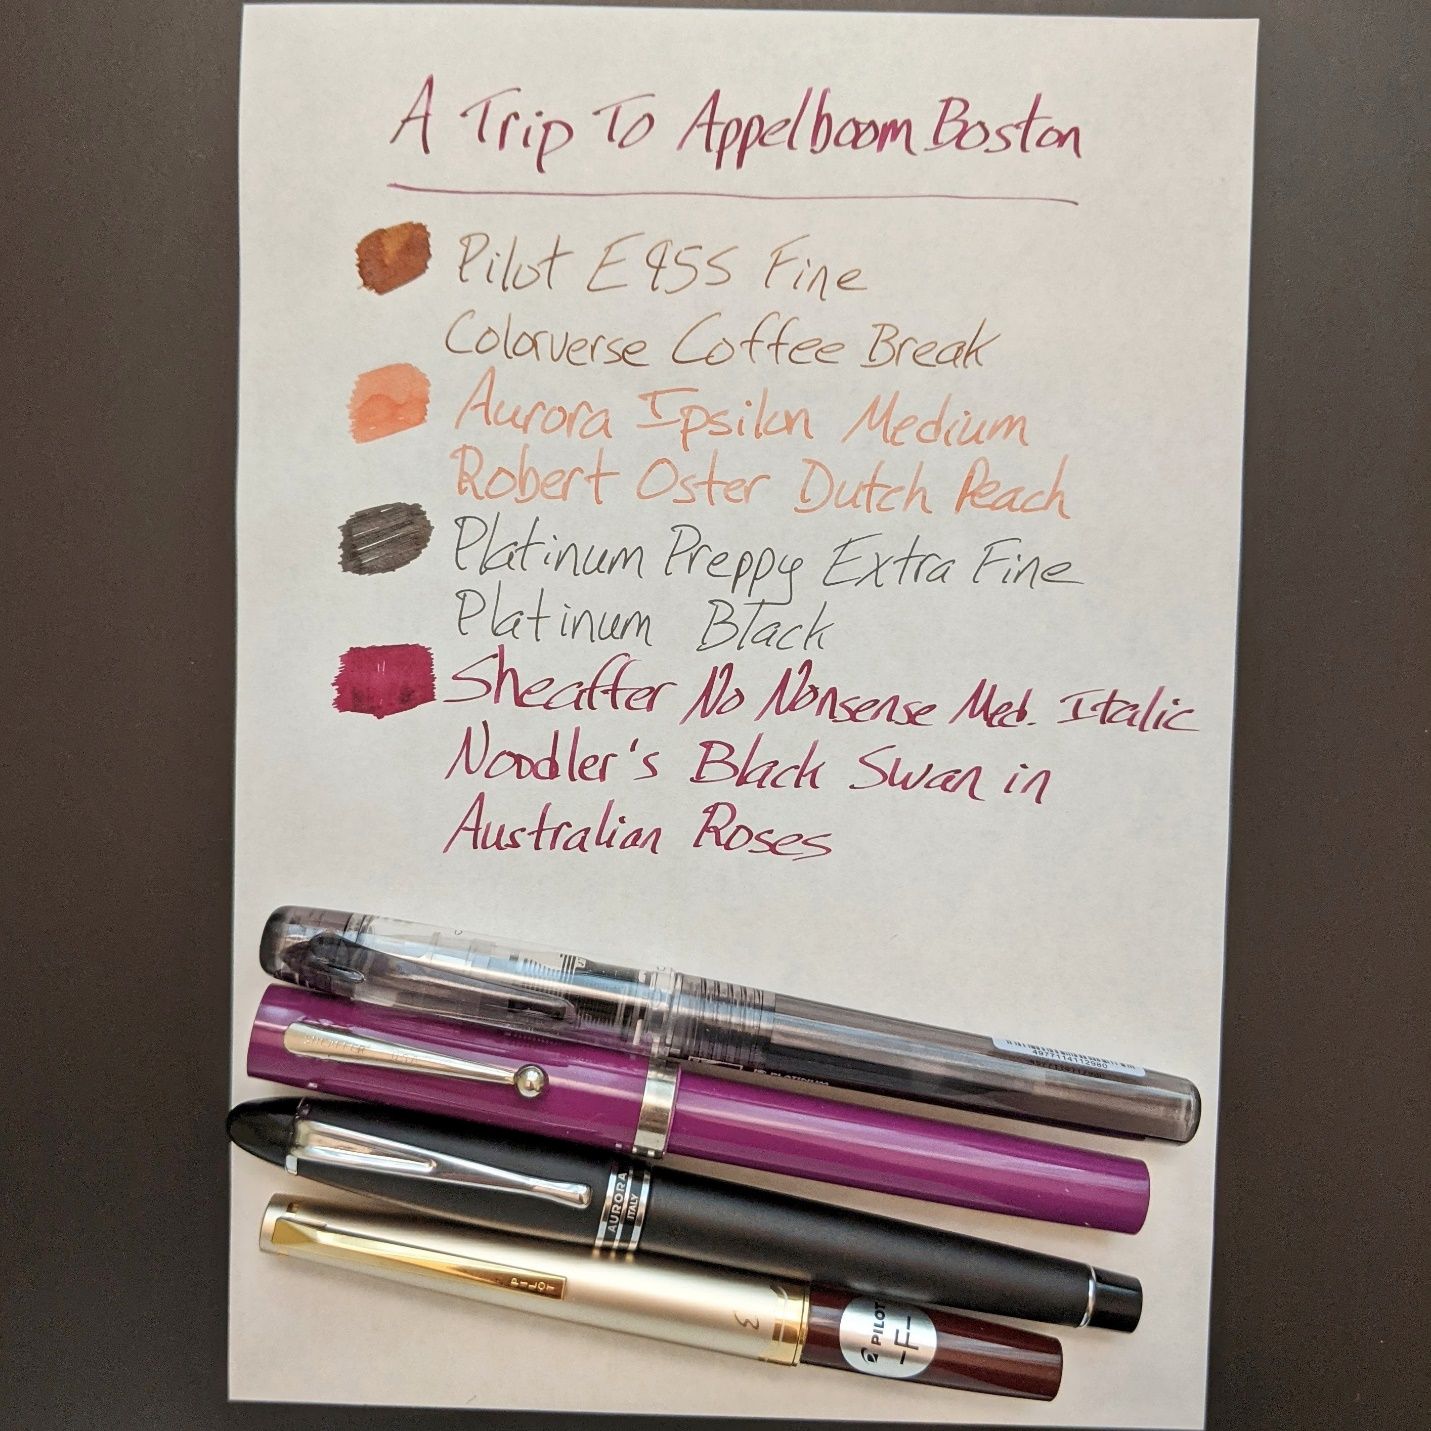 A Trip To Appelboom Boston
Pilot E95S Fine
Colorverse Coffee Break
Aurora Ipsilon Medium
Robert Oster Dutch Peach
Platinum Preppy Extra Fine
Platinum Black
Sheaffer No Nonsense Med. Italic
Noodler's Black Swan in
Australian Roses
4977114112980
SHEAFFER USA
AURORA
ITALY
PILOT
PILOT
-F-